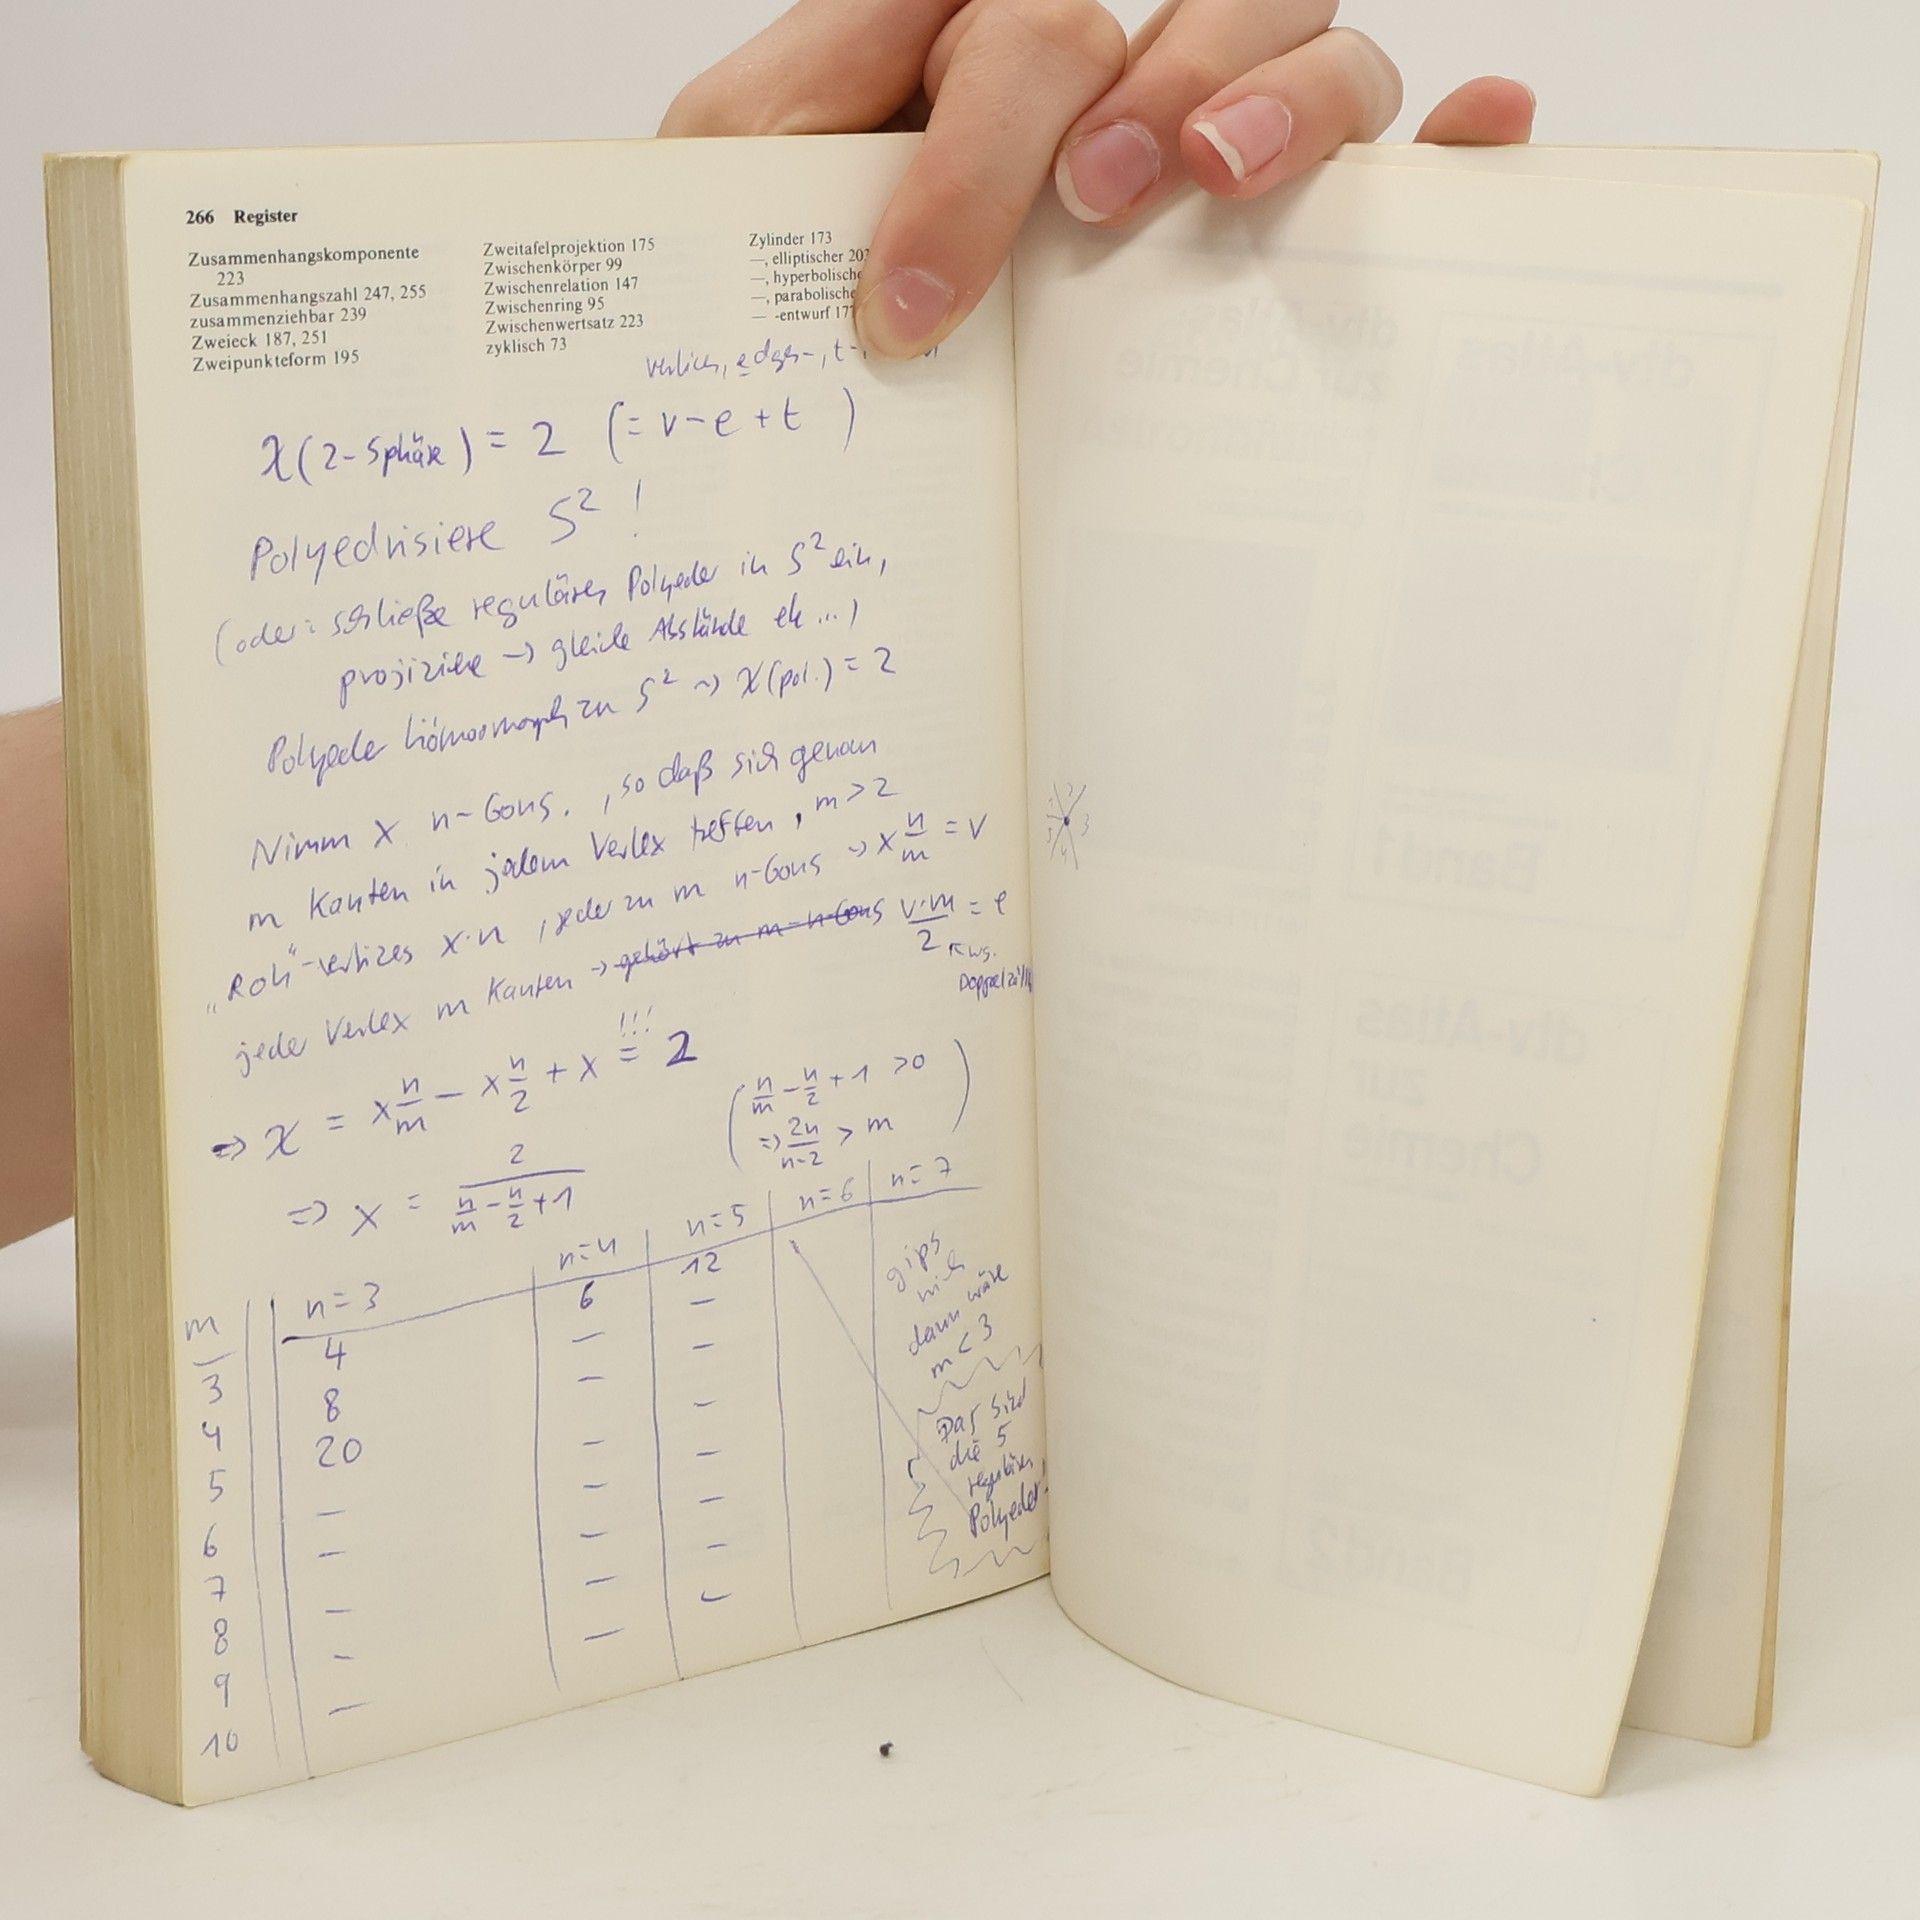 266 Register
Zusammenhangskomponente
223
Zusammenhangszahl 247, 255
zusammenziehbar 239
Zweieck 187, 251
Zweipunkteform 195
Zweitafelprojektion 175
Zwischenkörper 99
Zwischenrelation 147
Zwischenring 95
Zwischenwertsatz 223
zyklisch 73
Zylinder 173
—, elliptischer
—, hyperbolische
—, parabolische
— -entwurf
vertices, edges-, t-
χ(2-Sphäre) = 2 (= v-e+t )
Polyedrisiere S² !
(oder: schließe reguläres Polyeder in S² ein,
projiziere → gleiche Abstände etc ...)
Polyeder homöomorph zu S² ⇝ χ(pol.) = 2
Nimm x n-Gons. , so daß sich genau
m Kanten in jedem Vertex treffen , m > 2
"Roh"-vertizes x·n , jeder zu m n-Gons ⇝ x n/m = v
jeder Vertex m Kanten → gehört zu m n-Gons v·m/2 = e
↖ wg.
⇒ χ = x n/m - x n/2 + x = 2
!!!
(n/m - n/2 + 1 > 0
⇒ 2n/n-2 > m )
⇒ x = 2/(n/m - n/2 + 1)
m n=3 n=4 n=5 n=6 n=7
3 4 6 12
4 8 — —
5 20 — —
6 — — —
7 — — —
8 — — —
9 — — —
10 — — —
gips
nich
dann wäre
m < 3
Das sind
die 5
regulären
Polyeder
1
2
3
4
5
dtv-Atlas
zur Chemie
dtv-Atlas
Band 1
dtv-Atlas
zur
Chemie
Band 2